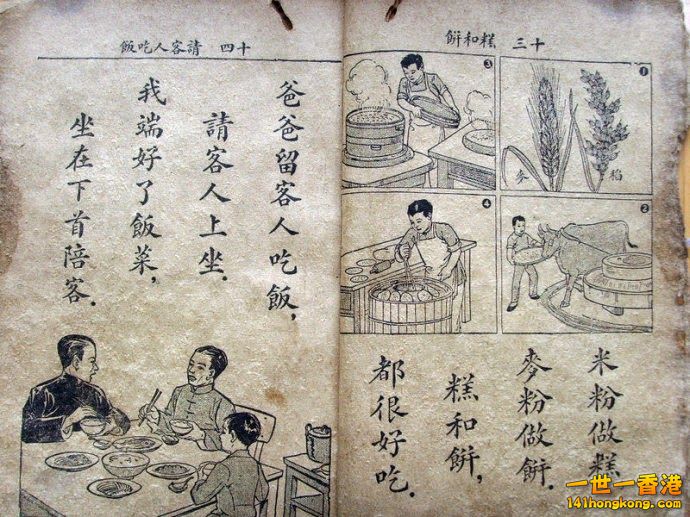 十三 糕和餅
1
稻
麥
2
3
4
米粉做糕
麥粉做餅.
糕和餅,
都很好吃.
十四 請客人吃飯
爸爸留客人吃飯,
請客人上坐.
我端好了飯菜,
坐在下首陪客.
一世一香港
141hongkong.com